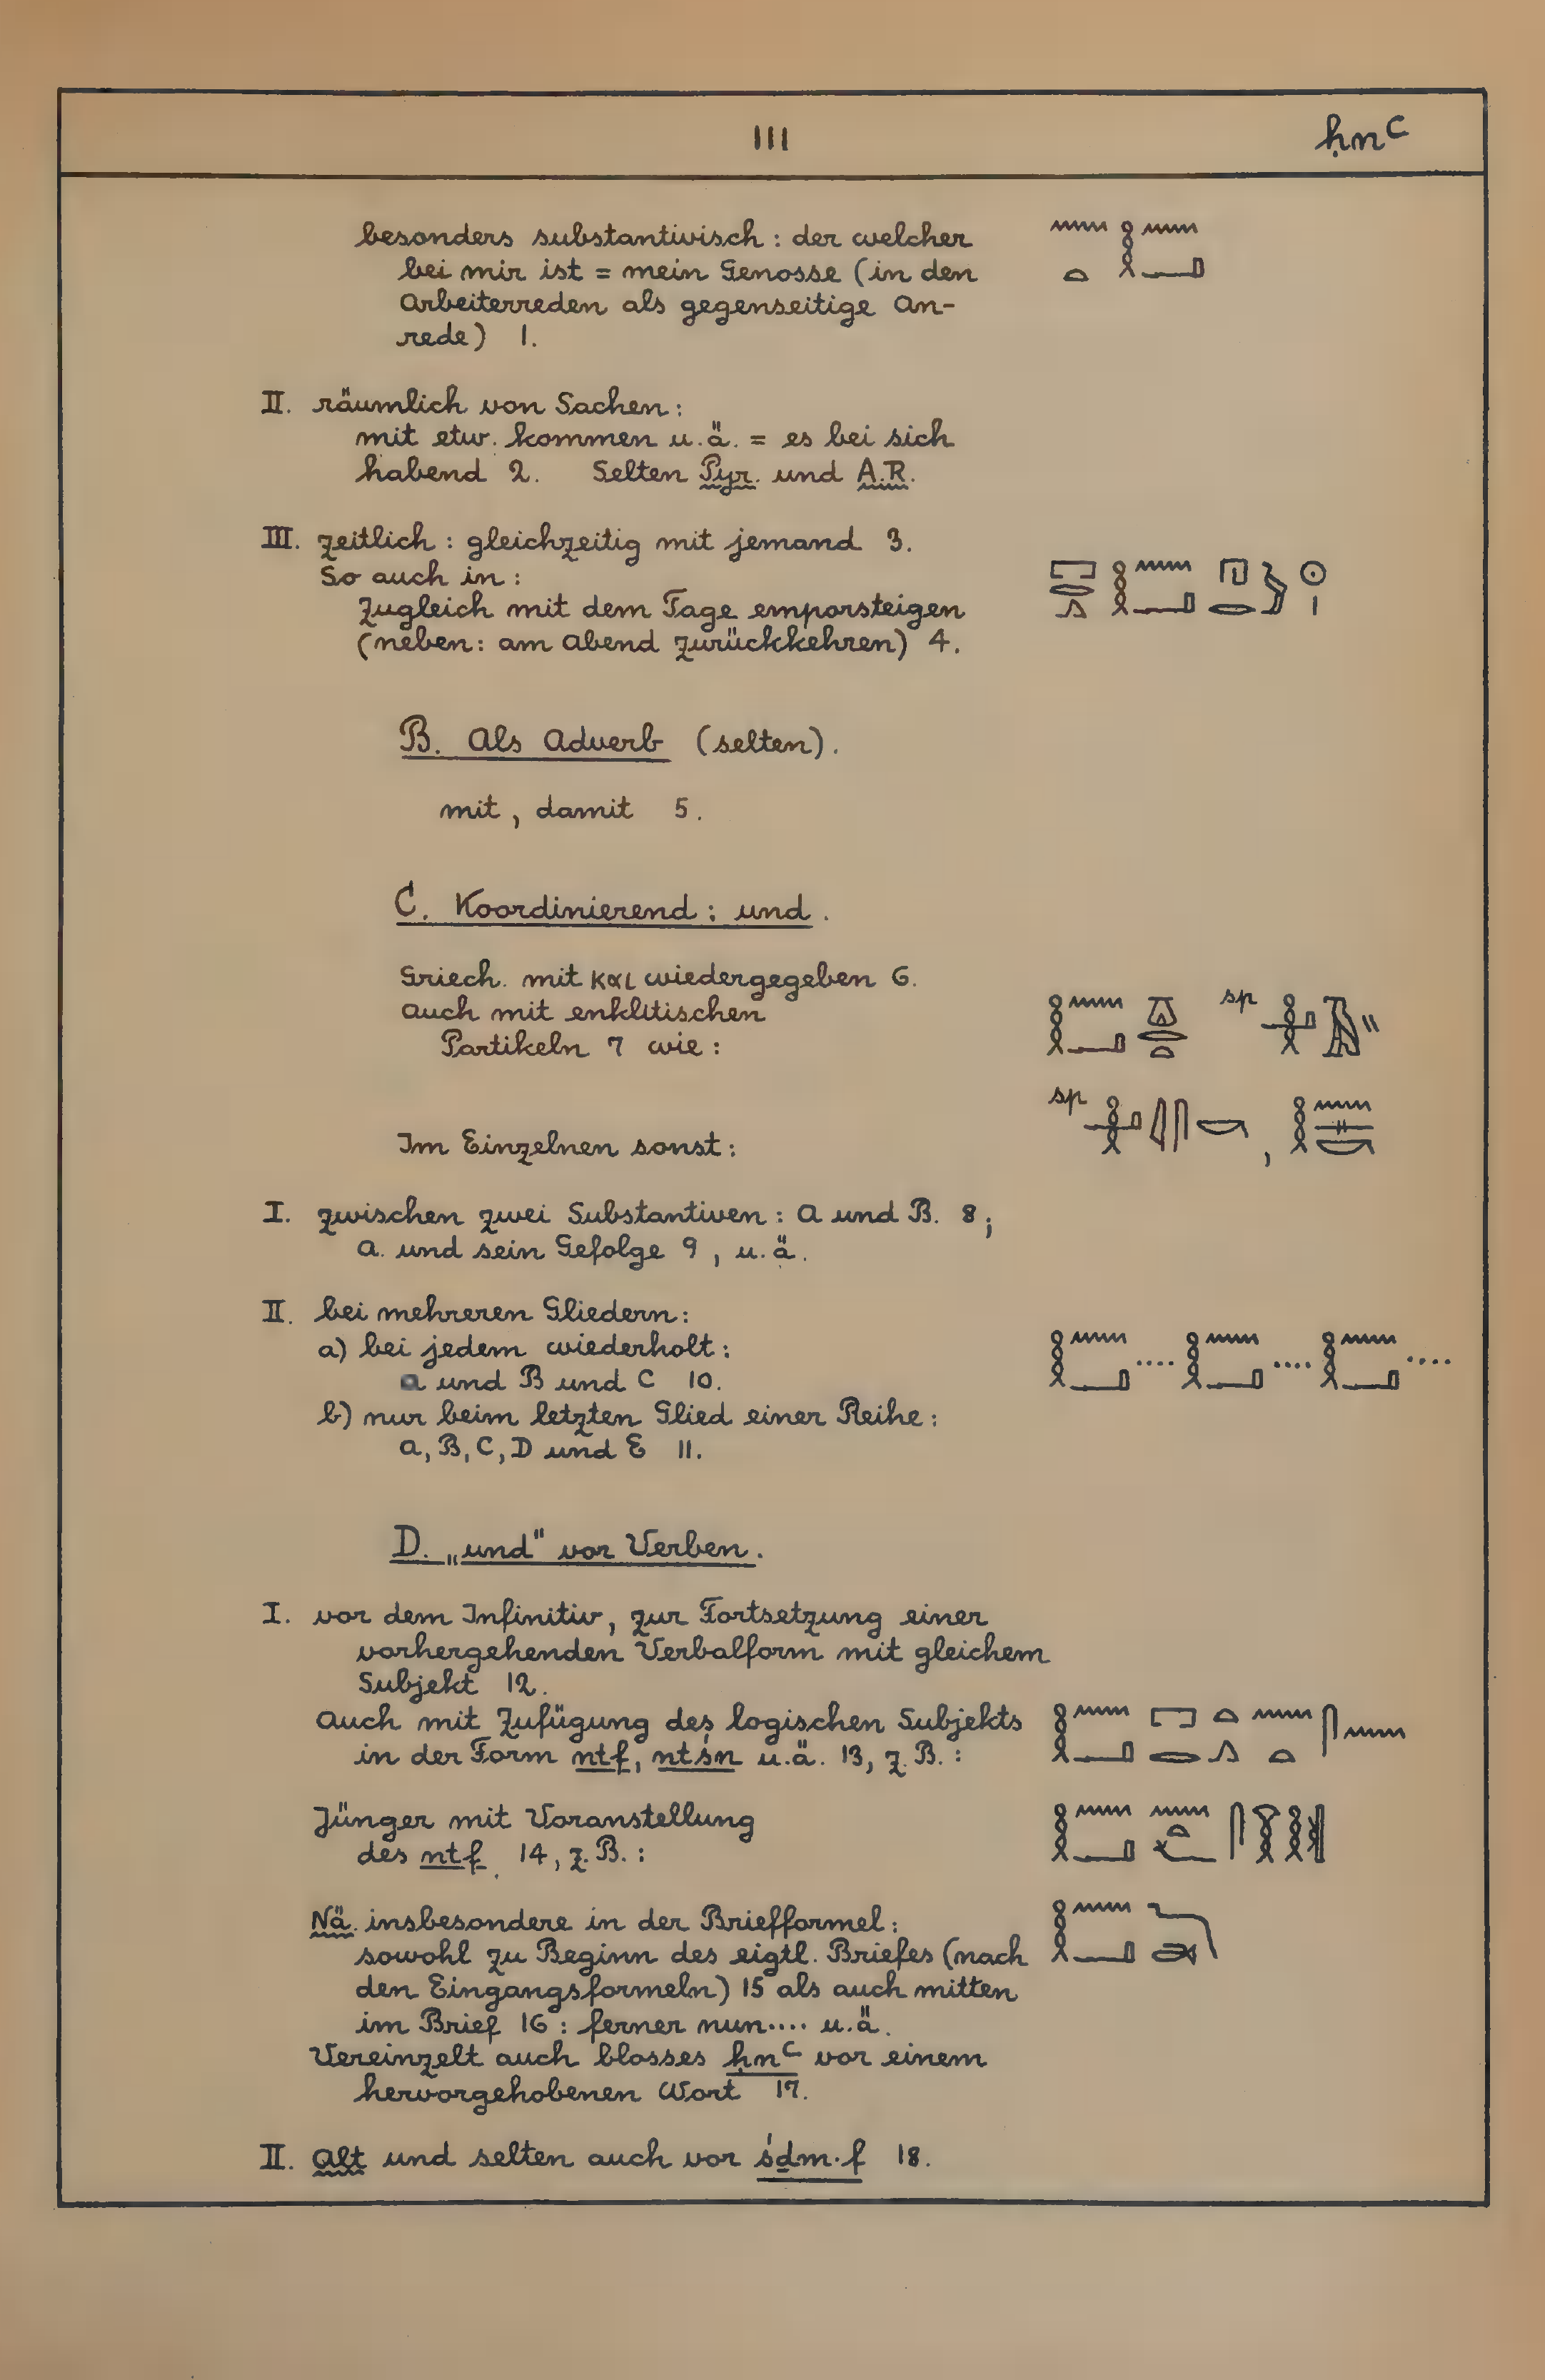 111 ḥnꜥ
besonders substantivisch: der welcher
bei mir ist = mein Genosse (in den
Arbeiterreden als gegenseitige An-
rede) 1.
II. räumlich von Sachen:
mit etw. kommen u.ä. = es bei sich
habend 2. Selten Pyr. und A.R.
III. zeitlich: gleichzeitig mit jemand 3.
So auch in:
zugleich mit dem Tage emporsteigen
(neben: am Abend zurückkehren) 4.
B. Als Adverb (selten).
mit, damit 5.
C. Koordinierend: und.
Griech. mit και wiedergegeben 6.
Auch mit enklitischen sp
Partikeln 7 wie:
sp
Im Einzelnen sonst: ,
I. zwischen zwei Substantiven: A und B. 8;
A. und sein Gefolge 9, u.ä.
II. bei mehreren Gliedern:
a) bei jedem wiederholt: .... .... ....
A und B und C 10.
b) nur beim letzten Glied einer Reihe:
A, B, C, D und E 11.
D. „und" vor Verben.
I. vor dem Infinitiv, zur Fortsetzung einer
vorhergehenden Verbalform mit gleichem
Subjekt 12.
Auch mit Zufügung des logischen Subjekts
in der Form ntf, ntśn u.ä. 13, z.B.:
Jünger mit Voranstellung
des ntf 14, z.B.:
Nä. insbesondere in der Briefformel:
sowohl zu Beginn des eigtl. Briefes (nach
den Eingangsformeln) 15 als auch mitten
im Brief 16: ferner nun.... u.ä.
Vereinzelt auch blosses ḥnꜥ vor einem
hervorgehobenen Wort 17.
II. Alt und selten auch vor śḏm·f 18.